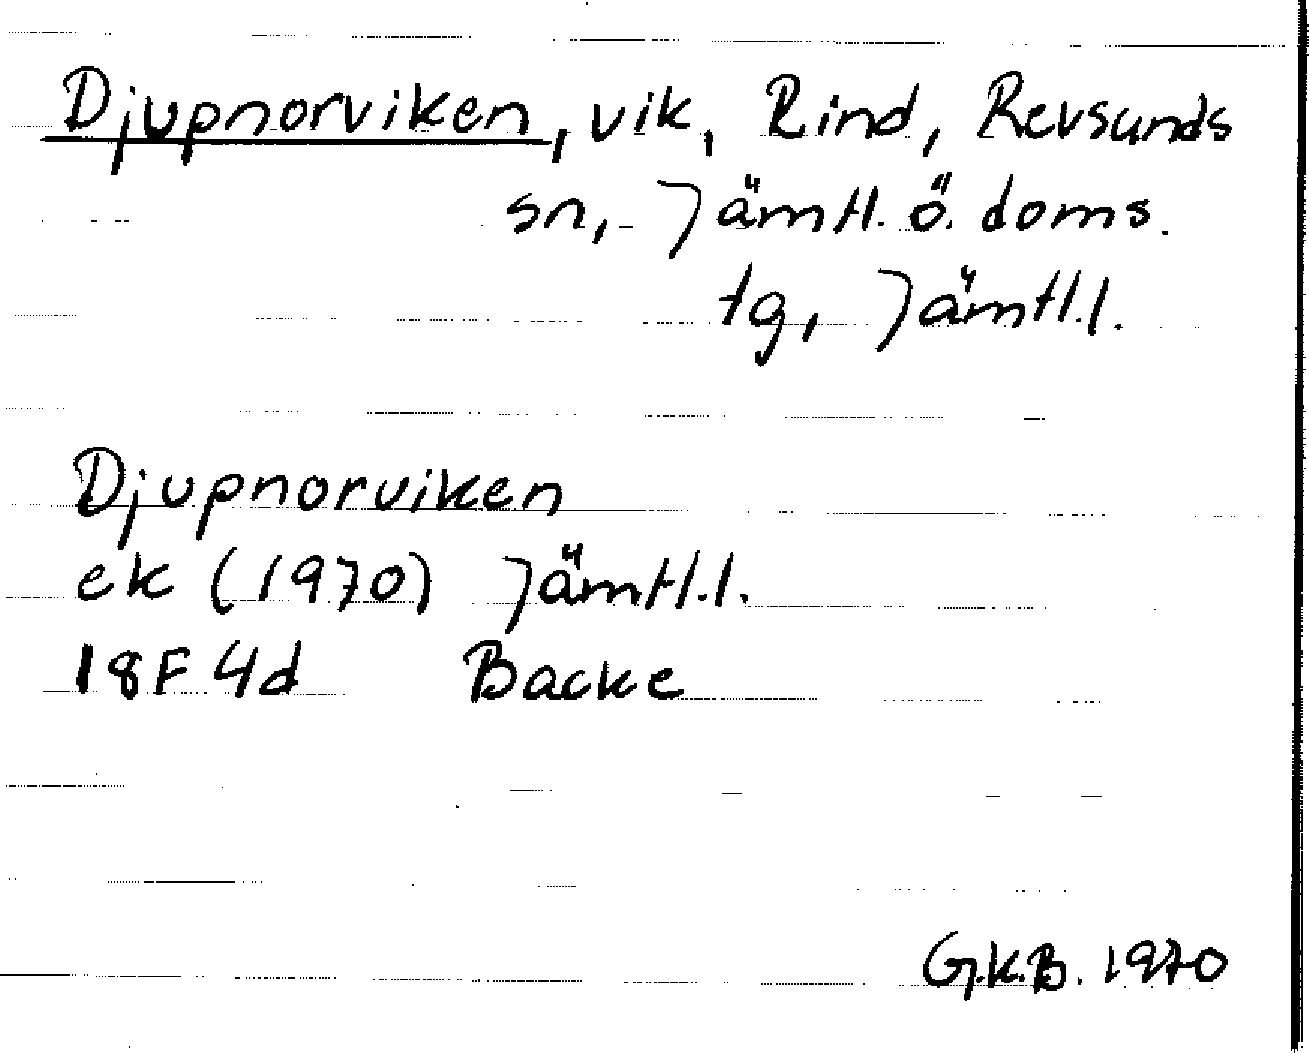 Djupnorviken, vik, Rind, Revsunds
sn, Jämtl. ö. doms.
tg, Jämtl.l.
Djupnorviken
ek (1970) Jämtl.l.
18F 4d Backe
G.K.B. 1970